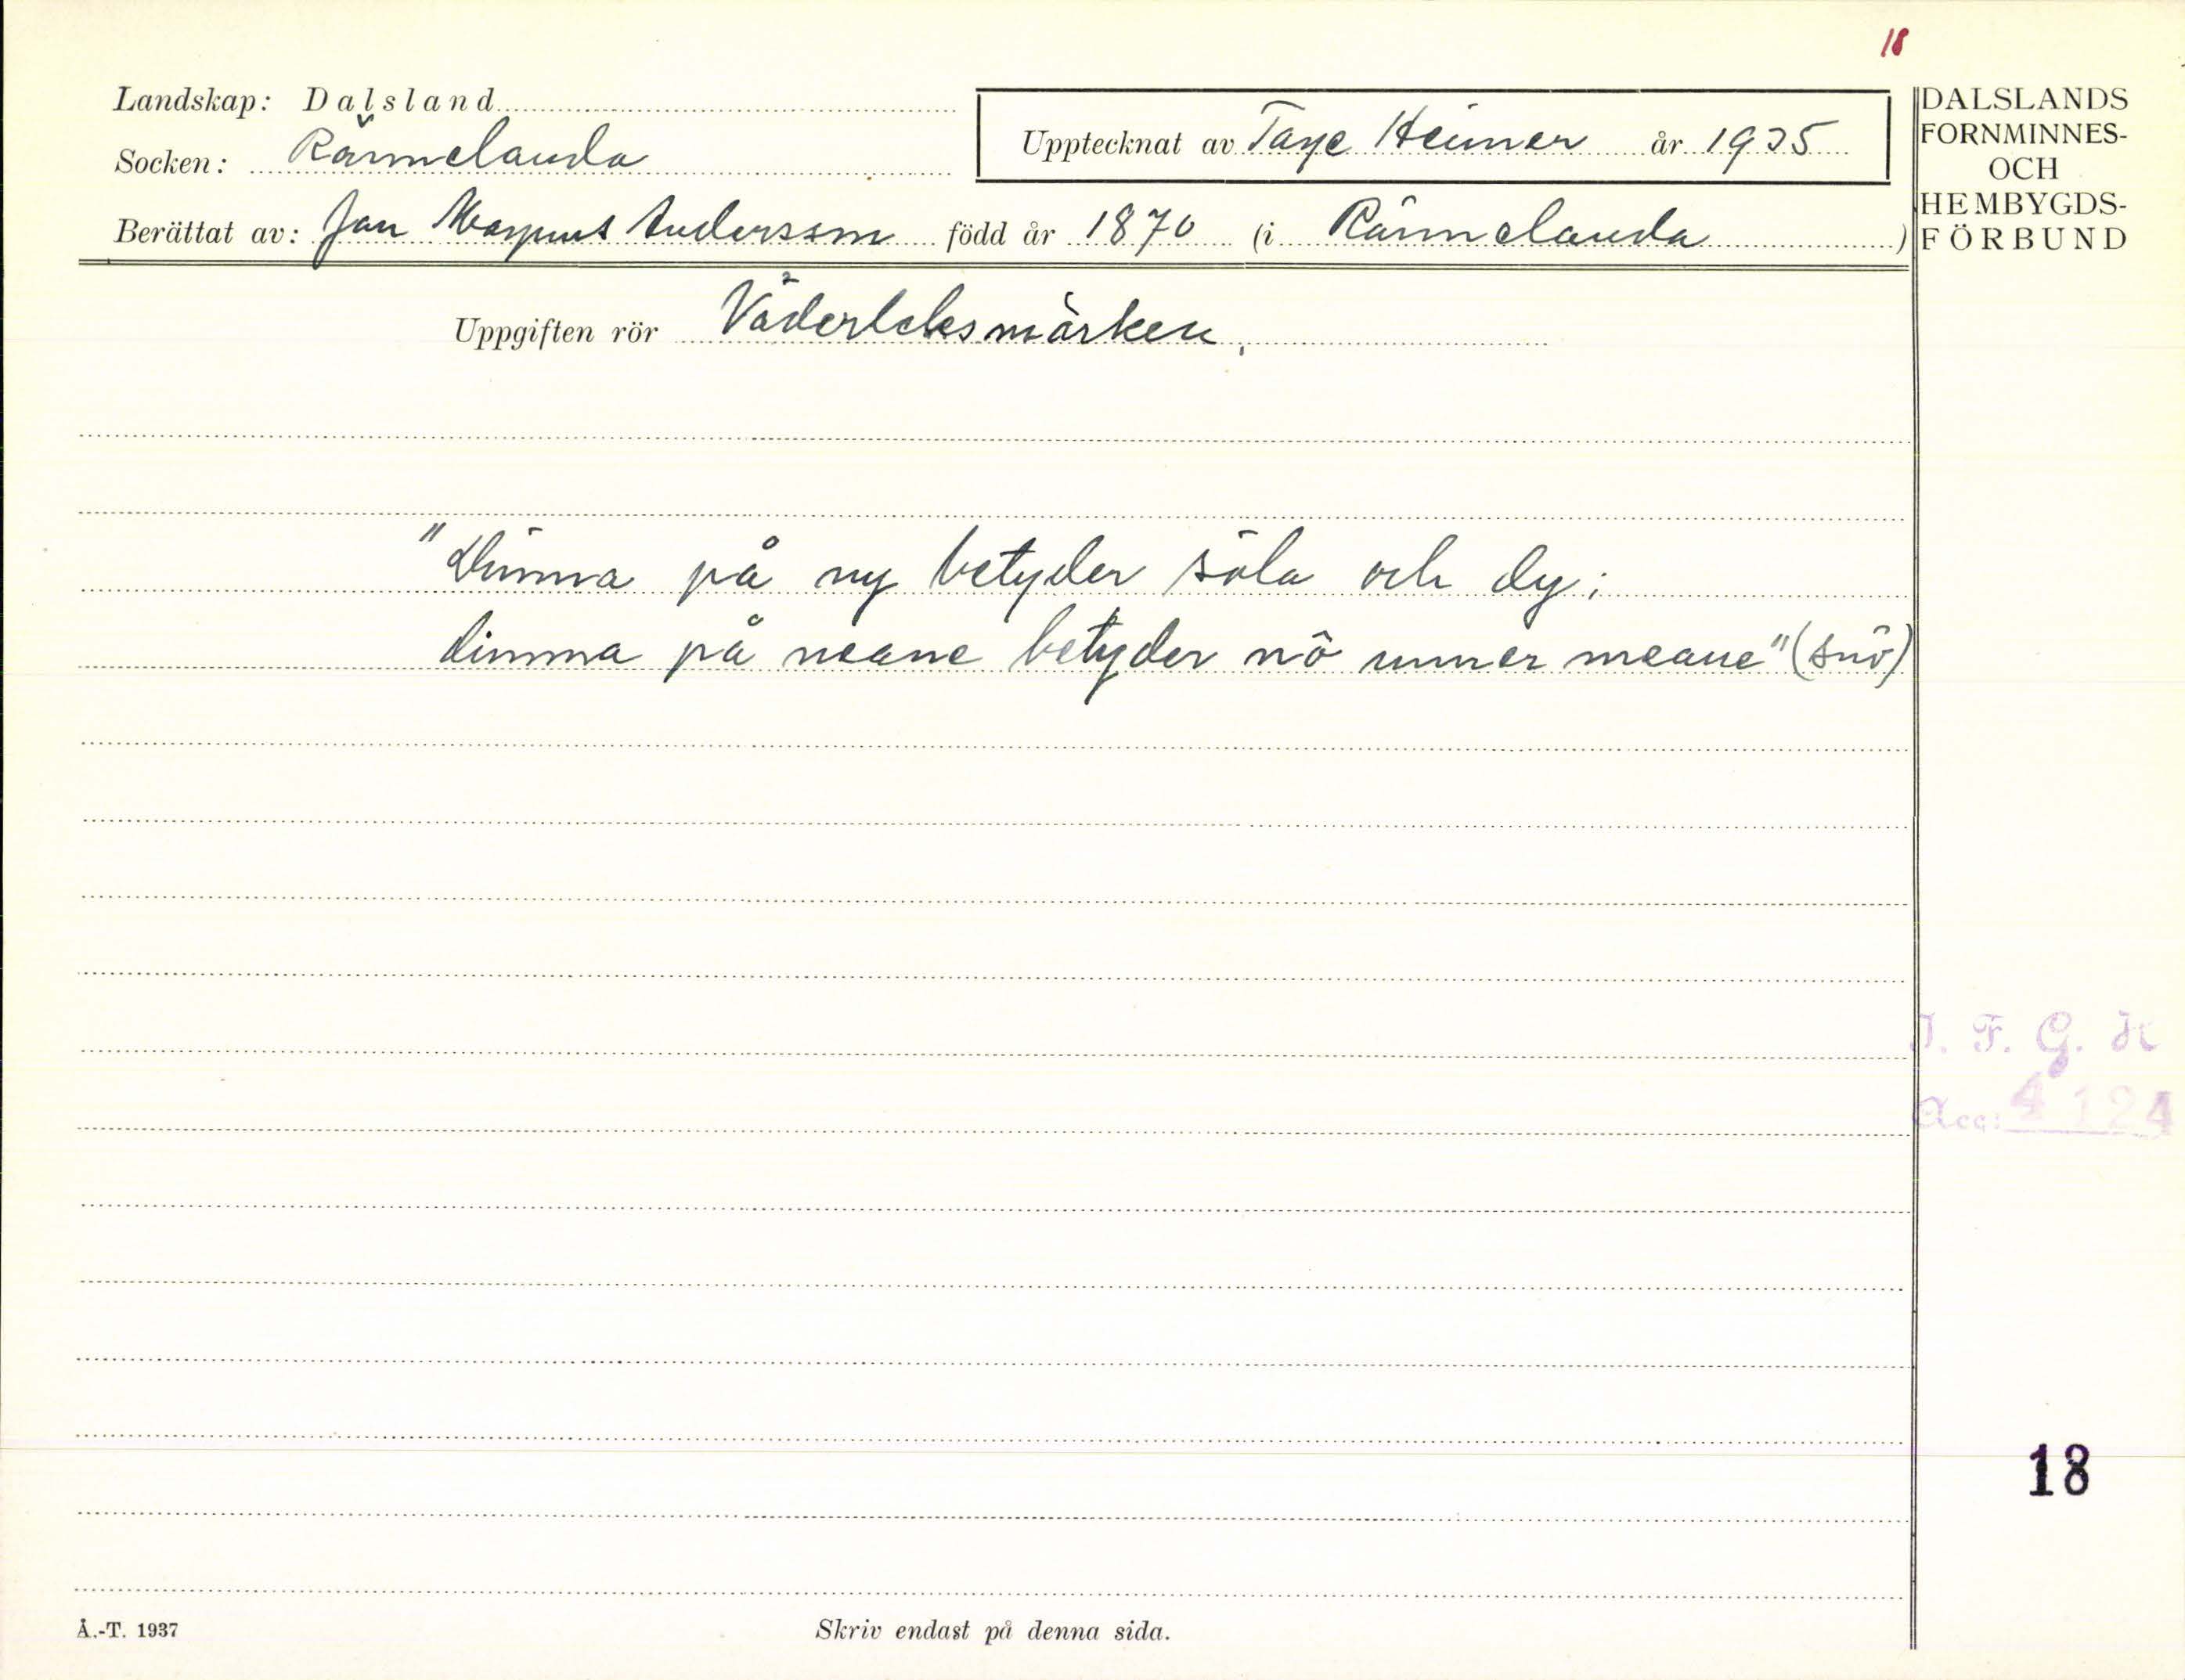 18
Landskap: Dalsland
Socken: Rännelanda
Upptecknat av Tage Heimer år 1935
Berättat av: Jan Magnus Andersson född år 1870 (i Rännelanda)
DALSLANDS
FORNMINNES-
OCH
HEMBYGDS-
FÖRBUND
Uppgiften rör Väderleksmärken.
"Dimma på ny betyder söla och dy;
dimma på neane betyder nö unner meane" (snö)
I. F. G. H
Acc: 4124
18
Å.-T. 1937
Skriv endast på denna sida.